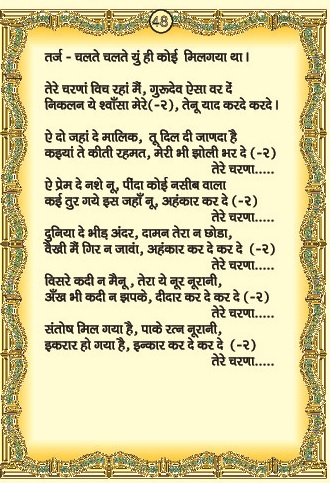 48
तर्ज - चलते चलते युं ही कोई मिलगया था।
तेरे चरणां विच रहां मैं, गुरूदेव ऐसा वर दें
निकलन ये श्वाँसा मेरे(-२), तेनू याद करदे करदे।
ऐ दो जहां दे मालिक, तू दिल दी जाणदा है
कइयां ते कीती रहमत, मेरी भी झोली भर दे (-२)
तेरे चरणा.....
ऐ प्रेम दे नशे नू, पींदा कोई नसीब वाला
कई तुर गये इस जहाँ नू, अहंकार कर दे (-२)
तेरे चरणा.....
दुनिया दे भीड़ अंदर, दामन तेरा न छोडा,
वैखी मैं गिर न जावां, अहंकार कर दे कर दे (-२)
तेरे चरणा.....
विसरे कदी न मैनू, तेरा ये नूर नूरानी,
अँख भी कदी न झपके, दीदार कर दे कर दे (-२)
तेरे चरणा.....
संतोष मिल गया है, पाके रत्न नूरानी,
इकरार हो गया है, इन्कार कर दे कर दे (-२)
तेरे चरणा.....